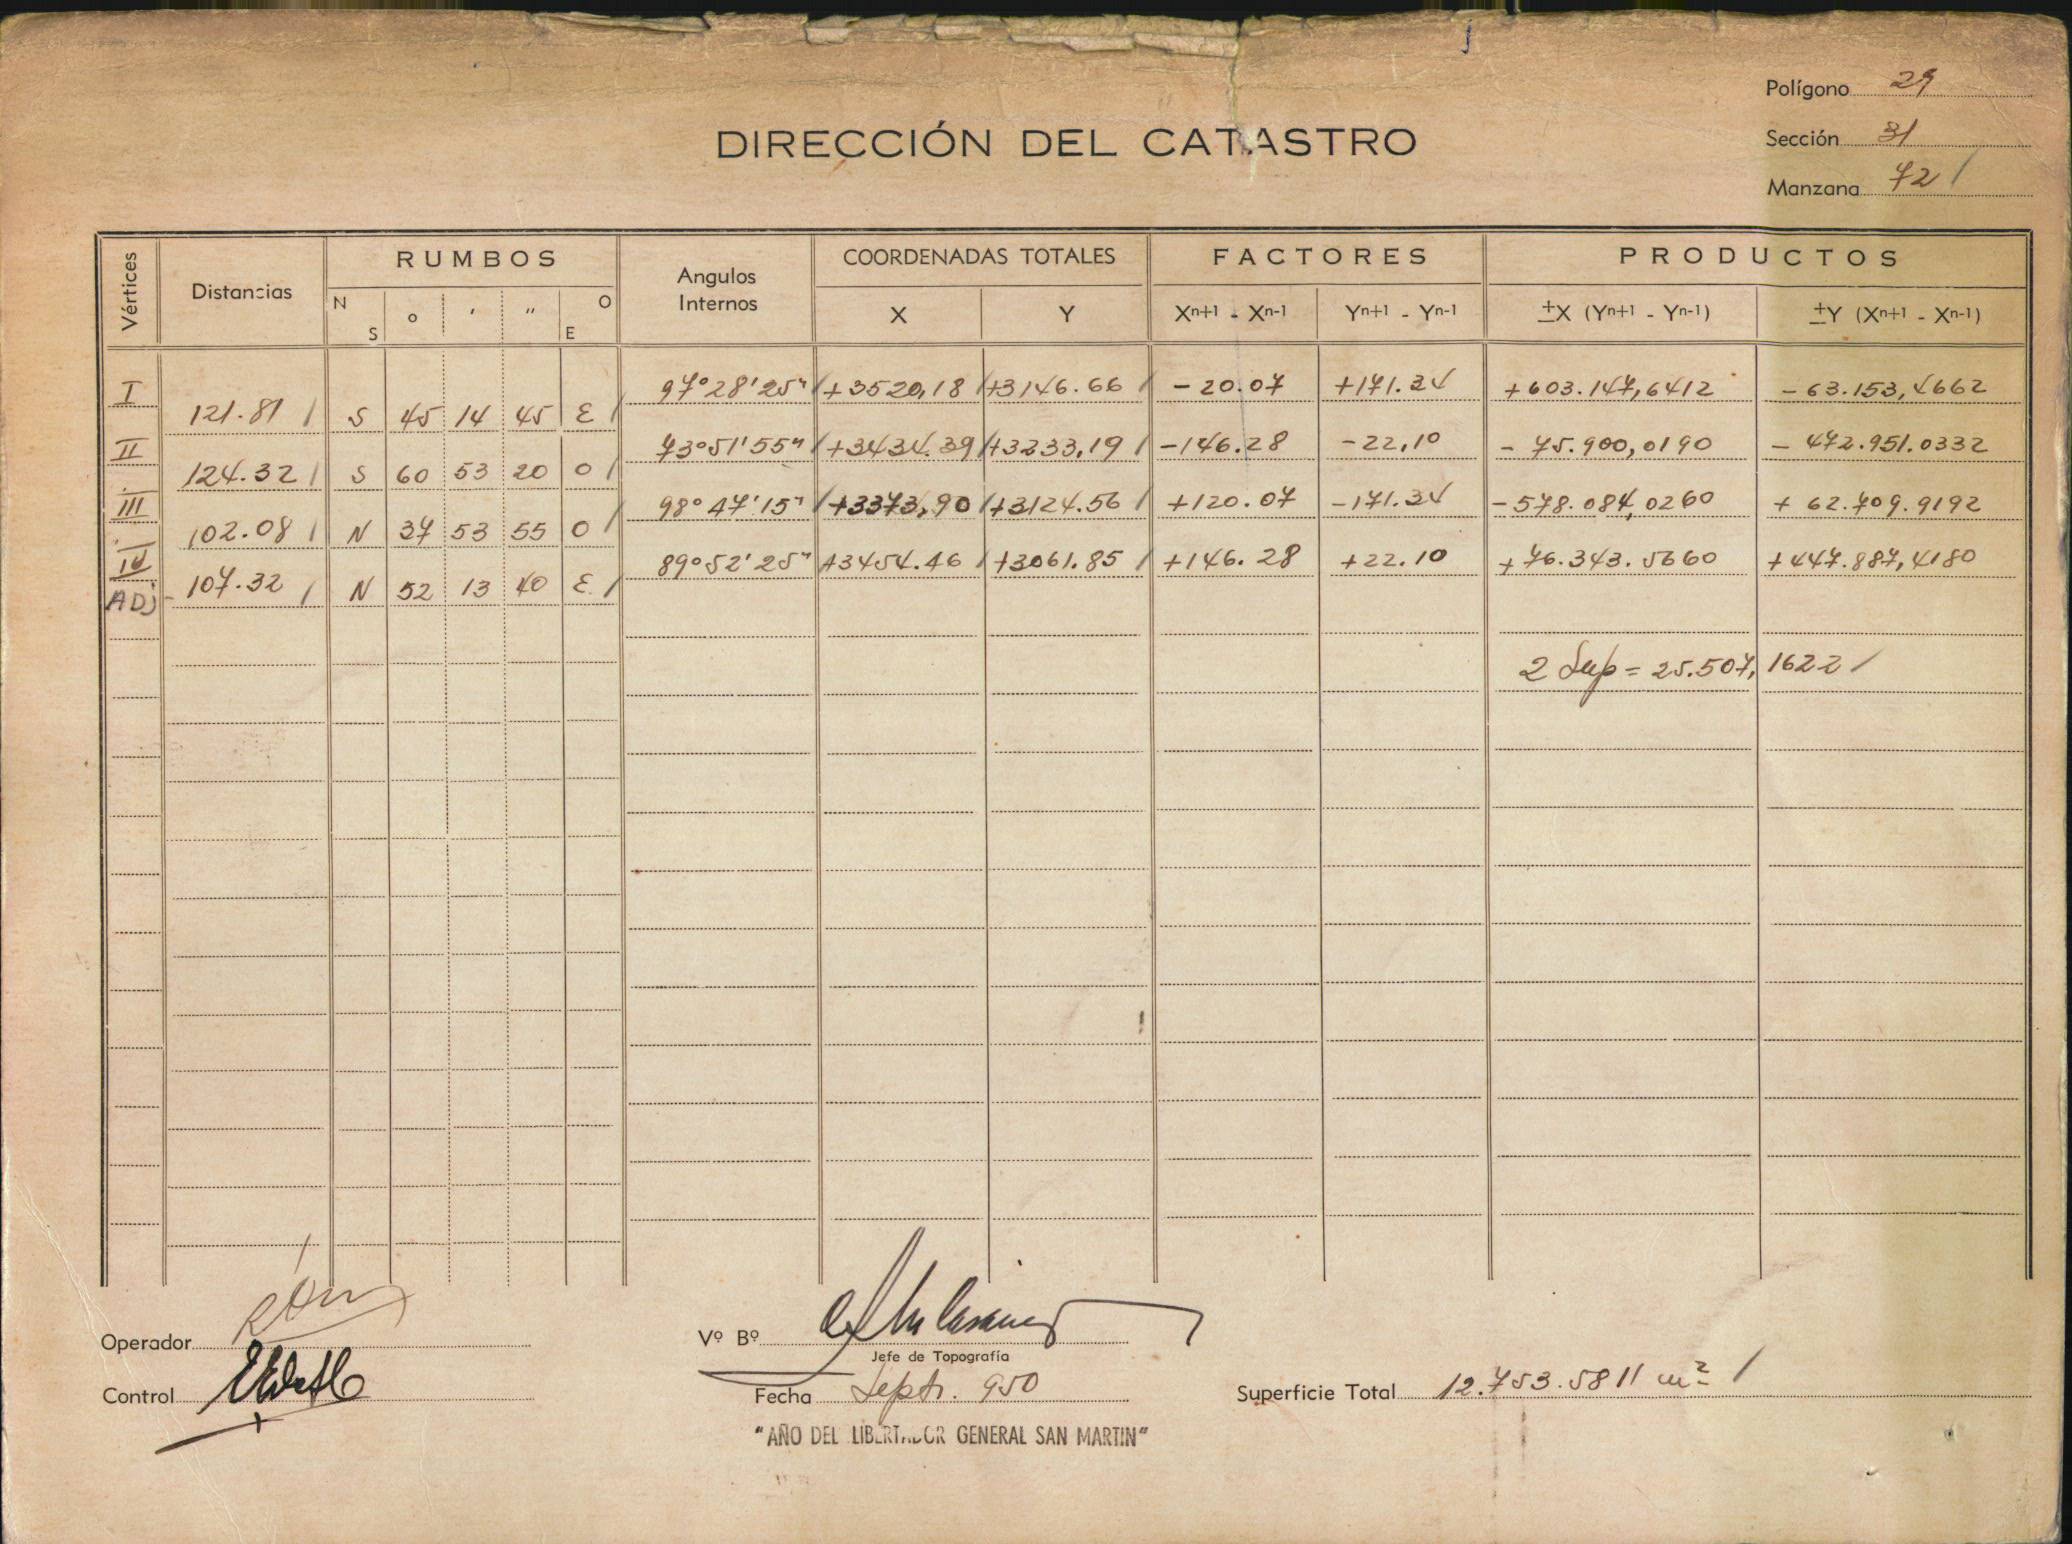 Polígono 29
DIRECCIÓN DEL CATASTRO
Sección 31
Manzana 72 /
Vértices Distancias RUMBOS Angulos Internos COORDENADAS TOTALES FACTORES PRODUCTOS
N S o ' " O E X Y Xn+1 - Xn-1 Yn+1 - Yn-1 ±X (Yn+1 - Yn-1) ±Y (Xn+1 - Xn-1)
I 97°28'25" / +3520,18 / +3146.66 / -20.07 +171.34 +603.147,6412 -63.153,4662
121.81 / S 45 14 45 E /
II 73°51'55" / +3434.39 / +3233,19 / -146.28 -22,10 -75.900,0190 -472.951.0332
124.32 / S 60 53 20 O /
III 98°47'15" / +3373,90 / +3124.56 / +120.07 -171.34 -578.084,0260 +62.709.9192
102.08 / N 37 53 55 O /
IV 89°52'25" +3454.46 / +3061.85 / +146.28 +22.10 +76.343.5660 +447.887,4180
ADJ - 107.32 / N 52 13 40 E /
2 Sup = 25.507,1622 /
Operador
Vº Bº
Jefe de Topografía
Control
Fecha Sept. 950
Superficie Total 12.753.5811 m² /
"AÑO DEL LIBERTADOR GENERAL SAN MARTIN"